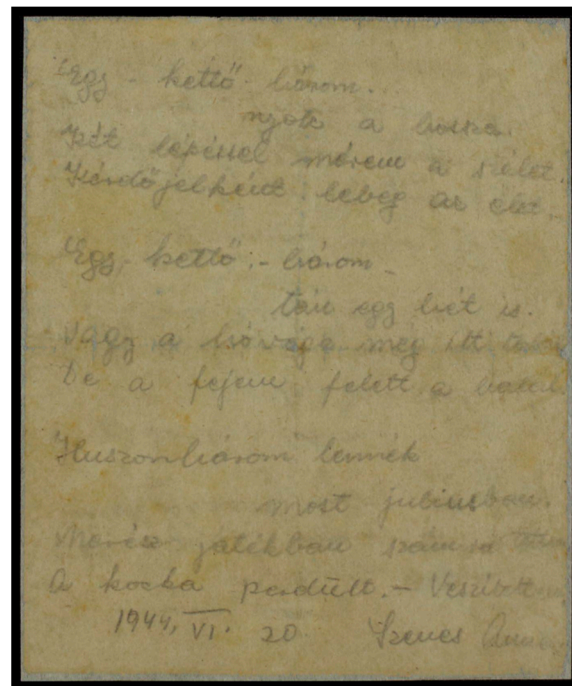 Egy - kettő - három.
nyolc a hossza.
Két lépéssel mérem a szélet.
Kérdőjelként lebeg az élet.
Egy, - kettő, - három
tán egy hét is.
Vagy a hó vége még itt
De a fejem felett a
Huszonhárom lennék
most júliusban.
Merész játékban számra
A kocka perdült. - Veszítettem
1944. VI. 20. Szenes Anna